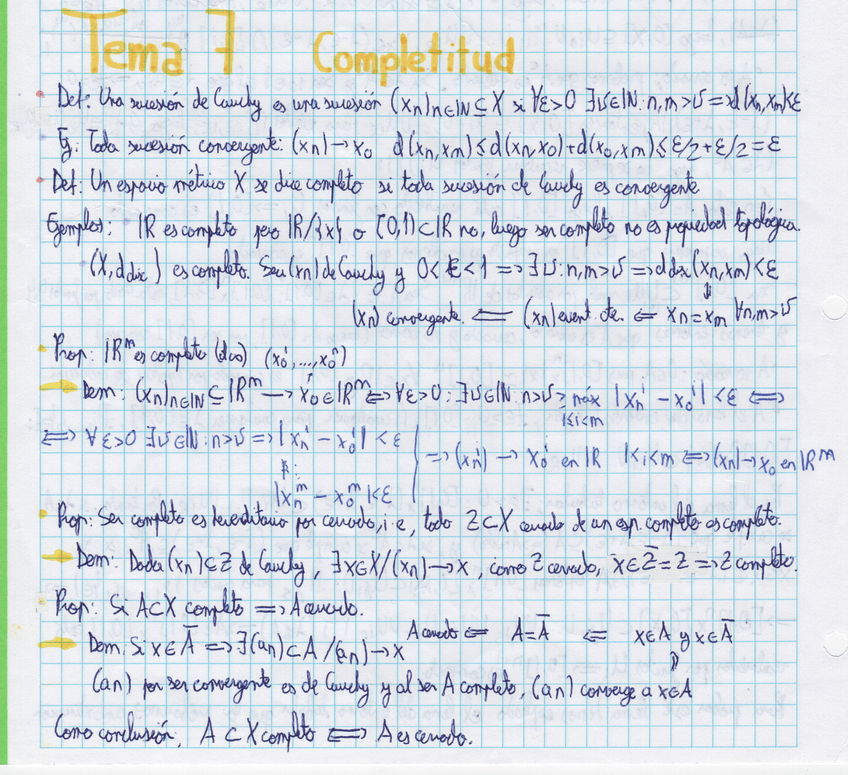 Tema 7 Completitud
Def: Una sucesión de Cauchy es una sucesión (xn)n∈ℕ ⊆ X si ∀ε>0 ∃υ∈ℕ: n,m>υ ⇒ d(xn,xm)<ε
Ej: Toda sucesión convergente: (xn)→x₀ d(xn,xm)≤d(xn,x₀)+d(x₀,xm)≤ε/2+ε/2=ε
Def: Un espacio métrico X se dice completo si toda sucesión de Cauchy es convergente
Ejemplos: ℝ es completo pero ℝ/{x} o [0,1)⊂ℝ no, luego ser completo no es propiedad topológica.
(X,d dis) es completo. Sea (xn) de Cauchy y 0<ε<1 ⇒ ∃υ: n,m>υ ⇒ d dis(xn,xm)<ε
⇓
(xn) convergente. ⇐ (xn) event. cte. ⇐ xn=xm ∀n,m>υ
Prop: ℝᵐ es completo (d∞) (x₀¹,...,x₀ⁿ)
Dem: (xn)n∈ℕ ⊆ ℝᵐ → x₀∈ℝᵐ ⇔ ∀ε>0: ∃υ∈ℕ n>υ ⇒ máx |xnⁱ - x₀ⁱ| <ε ⇔
1<i<m
⇔ ∀ε>0 ∃υ∈ℕ: n>υ ⇒ |xn¹ - x₀¹| <ε
⇒ (xnⁱ) → x₀ⁱ en ℝ 1<i<m ⇔ (xn)→x₀ en ℝᵐ
|xnᵐ - x₀ᵐ|<ε
Prop: Ser completo es hereditario por cerrado, i.e, todo Z⊂X cerrado de un esp. completo es completo.
Dem: Dada (xn)⊆Z de Cauchy, ∃x∈X/(xn)→x, como Z cerrado, x∈Z̄=Z ⇒ Z completo.
Prop: Si A⊂X completo ⇒ A cerrado.
Dem: Si x∈Ā ⇒ ∃(an)⊂A/(an)→x A cerrado ⇐ A=Ā ⇐ x∈A y x∈Ā
⇑
(an) por ser convergente es de Cauchy y al ser A completo, (an) converge a x∈A
Como conclusión, A⊂X completo ⇔ A es cerrado.